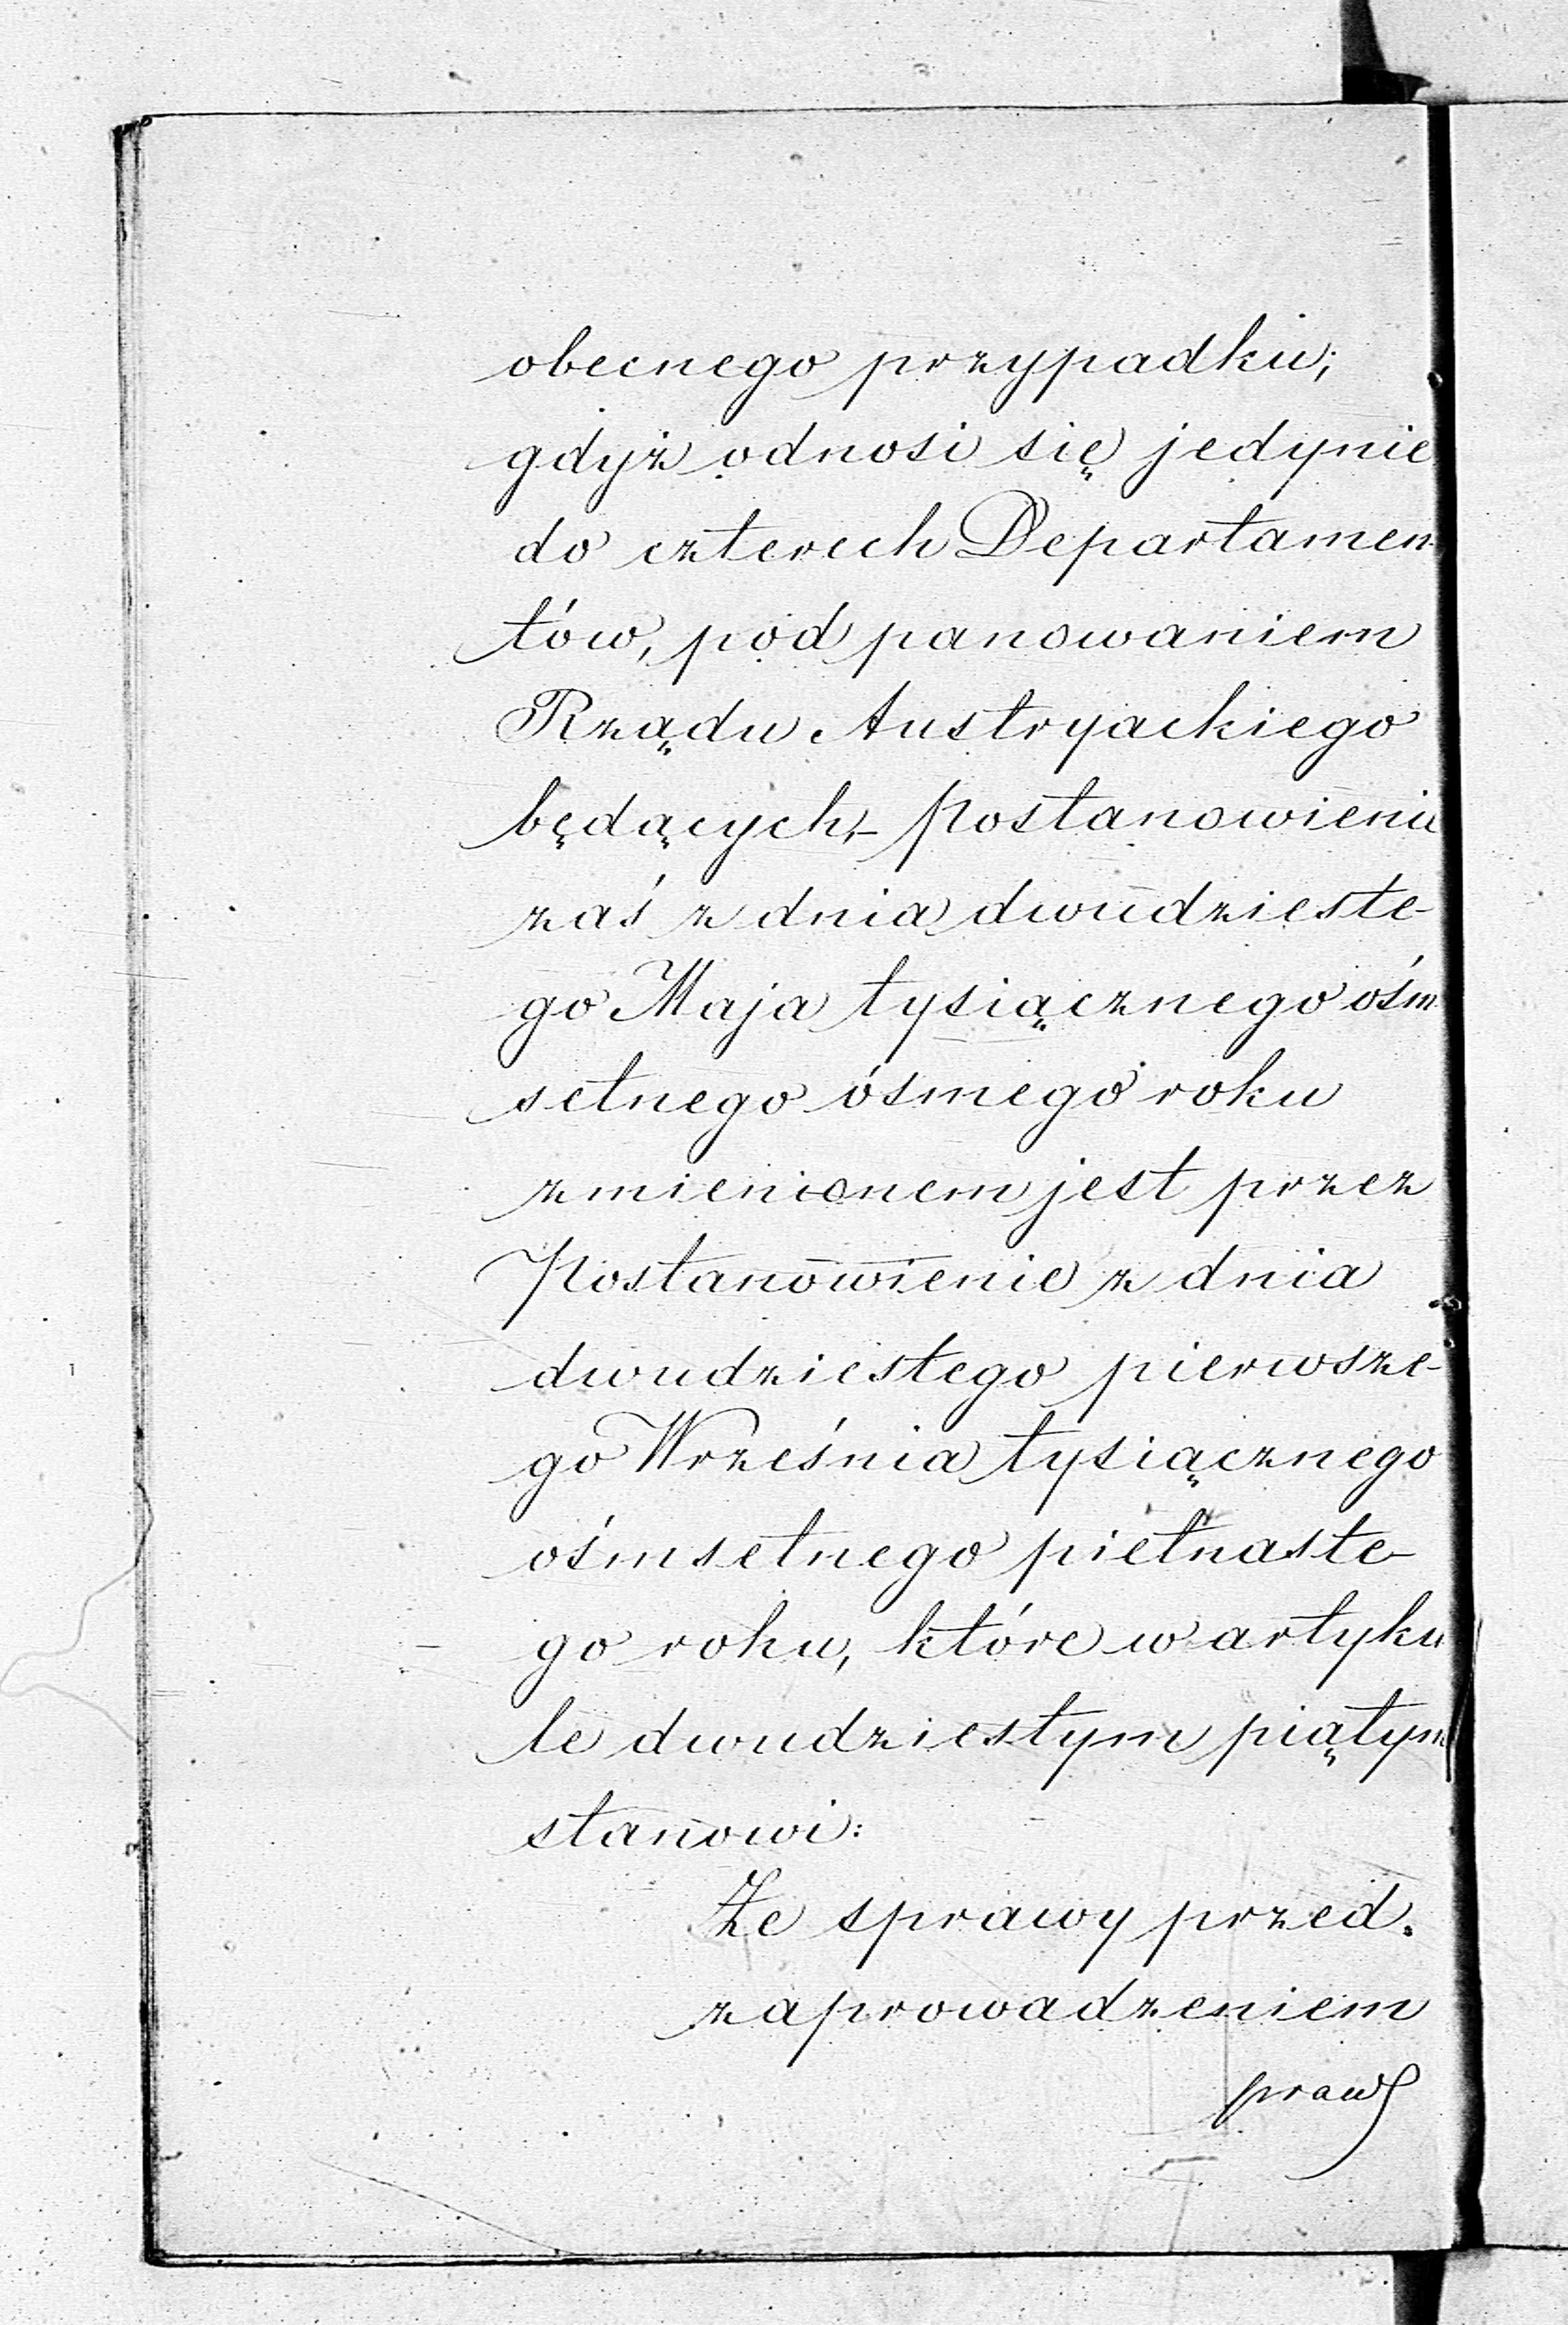 obecnego przypadku;
gdyż odnosi się jedynie
do czterech Departamen
tów, pod panowaniem
Rządu Austryackiego
będących, – Postanowienie
zaś z dnia dwudzieste-
go Maja tysiącznego ośm
setnego ósmego roku
zmienionem jest przez
Postanowienie z dnia
dwudziestego pierwsze-
go Września tysiącznego
ośmsetnego pietnaste-
go roku, które w artyku
le dwudziestym piątym
stanowi:
Że sprawy przed.
zaprowadzeniem
praw